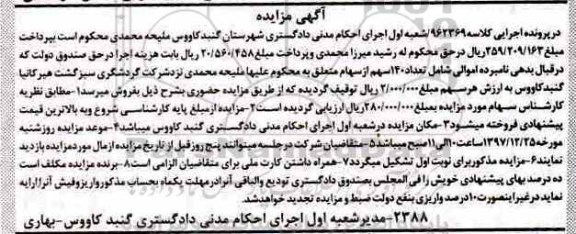 آگهی مزایده
درپرونده اجرایی کلاسه۹۶۲۳۶۹/شعبه اول اجرای احکام مدنی دادگستری شهرستان گنبدکاووس ملیحه محمدی محکوم است بپرداخت
مبلغ۲۵۹/۲۰۹/۱۶۳ریال درحق محکوم له رشید میرزا محمدی وپرداخت مبلغ۲۰/۵۶۰/۴۵۸ ریال بابت هزینه اجرا درحق صندوق دولت که
درقبال بدهی نامبرده اموالی شامل تعداد۱۴۰سهم ازسهام متعلق به محکوم علیها ملیحه محمدی نزدشرکت گردشگری سبزگشت هیرکانیا
گنبدکاووس به ارزش هرسهم مبلغ ۲/۰۰۰/۰۰۰ ریال توقیف گردیده که از طریق مزایده حضوری بشرح ذیل بفروش میرسد۱-مطابق نظریه
کارشناس سهام مورد مزایده بمبلغ۲۸۰/۰۰۰/۰۰۰ریال ارزیابی گردیده است۲-مزایده ازمبلغ پایه کارشناسی شروع وبه بالاترین قیمت
پیشنهادی فروخته میشود۳-مکان مزایده درشعبه اول اجرای احکام مدنی دادگستری گنبد کاووس میباشد۴-موعد مزایده روزشنبه
مورخه۱۳۹۷/۱۲/۲۵ساعت۱۰الی۱۱صبح میباشد۵-متقاضیان شرکت درجلسه میتوانند پنج روزقبل از تاریخ مزایده ازمال موردمزایده بازدید
نمایند۶-مزایده مذکوربرای نوبت اول تشکیل میگردد۷-همراه داشتن کارت ملی برای متقاضیان الزامی است۸-برنده مزایده مکلف است
ده درصد بهای پیشنهادی خویش را فی المجلس بصندوق دادگستری تودیع والباقی آنرادرمهلت یکماه بحساب مذکورواریزوفیش آنراارایه
نماید درغیراینصورت۱۰درصد واریزی بنفع دولت ضبط و مزایده تجدید خواهدشد.
۲۳۸۸-مدیرشعبه اول اجرای احکام مدنی دادگستری گنبد کاووس-بهاری